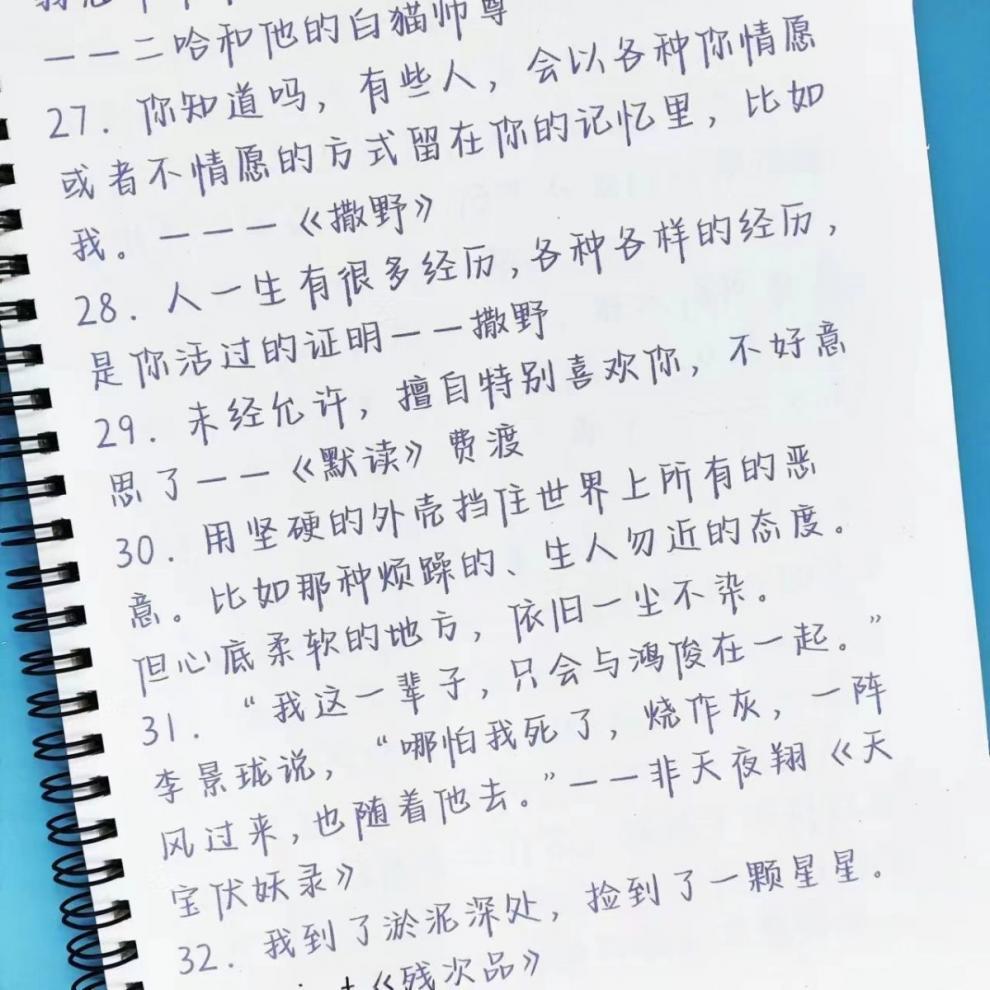 ——二哈和他的白猫师尊
27. 你知道吗，有些人，会以各种你情愿
或者不情愿的方式留在你的记忆里，比如
我。———《撒野》
28. 人一生有很多经历，各种各样的经历，
是你活过的证明——撒野
29. 未经允许，擅自特别喜欢你，不好意
思了——《默读》费渡
30. 用坚硬的外壳挡住世界上所有的恶
意。比如那种烦躁的、生人勿近的态度。
但心底柔软的地方，依旧一尘不染。
31. “我这一辈子，只会与鸿俊在一起。”
李景珑说，“哪怕我死了，烧作灰，一阵
风过来，也随着他去。”——非天夜翔《天
宝伏妖录》
32. 我到了淤泥深处，捡到了一颗星星.
《残次品》